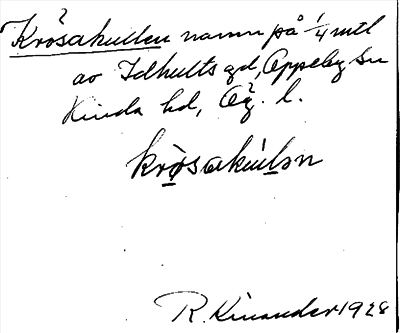 Krösakullen namn på 1/4 mtl
av Idhults gd, Oppeby sn
Kinda hd, Ög. l.
krösakúlən
R. Kinander 1928